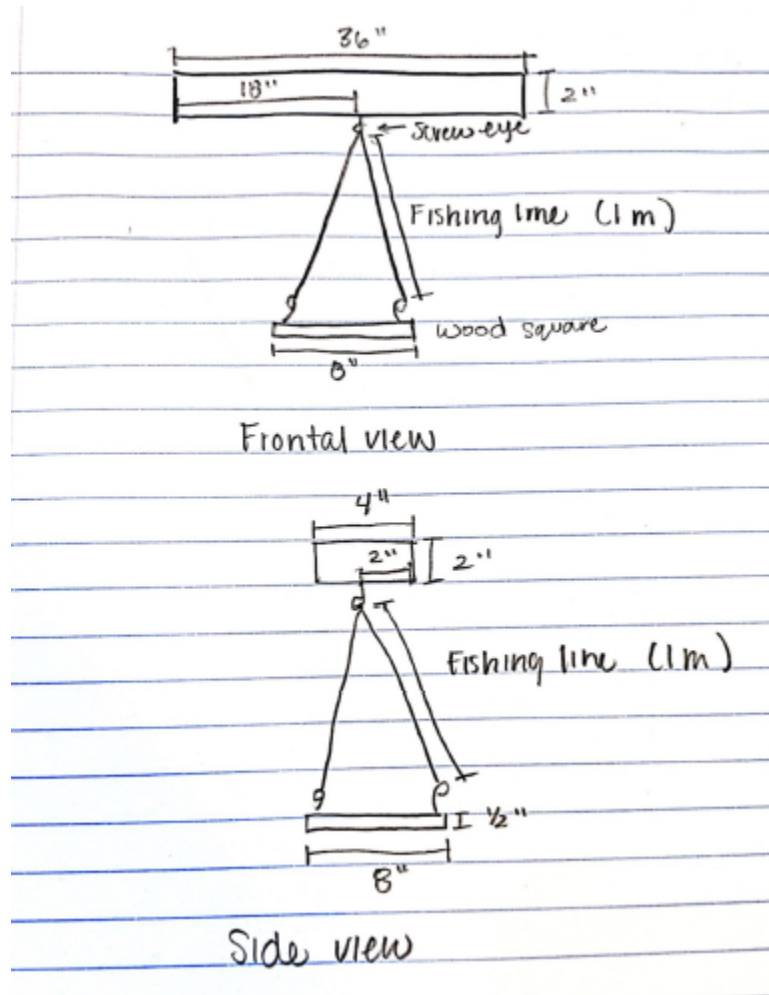 36"
18"
2"
screw eye
Fishing line (1 m)
wood square
8"
Frontal view
4"
2"
2"
Fishing line (1m)
1/2"
8"
Side view